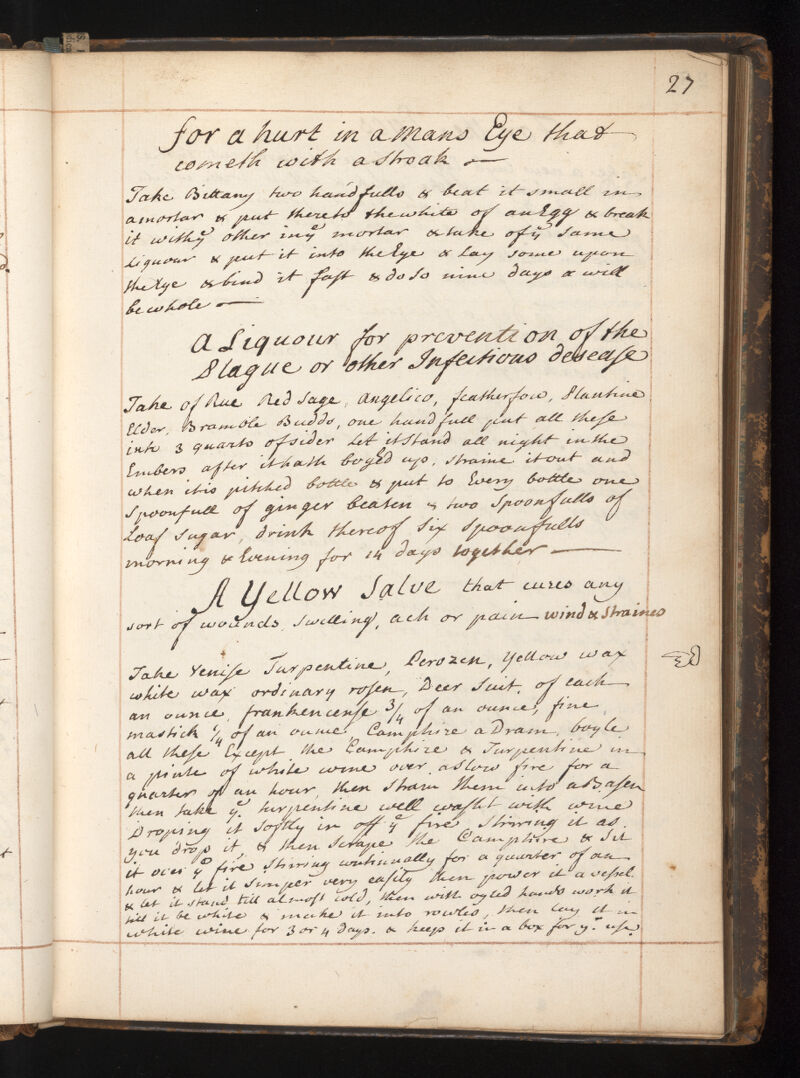 27
for a hurt in a Mans Eye that
cometh with a stroak
Take Bittany two handfulls & beat it small in
a mortar & put thereto the white of an Egg & break
it with yᵉ other in yᵉ mortar & take of yᵉ same
Liquour & put it into the Eye & Lay some upon
the Eye & bind it fast & do so nine days & will
be whole
A Liquour for prevention of the
Plague or other Infectious desease
Take of Rue Red Sage, Angelico, featherfow, Plantine
Elder, Bramble Budds, one handfull put all these
into 3 quarts of sider Let it stand all night in the
Embers after it hath boyled up, straine it out and
when it is pitched bottle & put to Every bottle one
spoonfull of ginger beaten & two spoonfulls of
Loaf sugar, drink thereof six spoonfulls
morning & Evening for 14 days together
A Yellow Salve that cures any
sort of wounds, swelling, ach or pain wind & Straines
Take Venise Turpentine, Perozen, Yellow wax
white wax ordinary rosen, Deer Suit, of each
an ounce, frankencense 3/4 of an ounce, fine
mastick 1/4 of an ounce Camphire a Dram, boyle
all these Except the Camphire & Turpentine in
a pinte of white wine over a slow fire for a
quarter of an hour, then strain them into a Basen
then take yᵉ turpentine well washt with wine
Droping it softly in off yᵉ fire, stirring it as
you drop it, & then scrape the Camphire & Sit
it over yᵉ fire stirring continually for a quarter of an
hour & let it simper very easily then power it a vessel
& let it stand till almost cold, then with oyled hands work it
till it be white & make it into rowles, then lay it in
white wine for 3 or 4 days. & keep it in a box for yʳ use